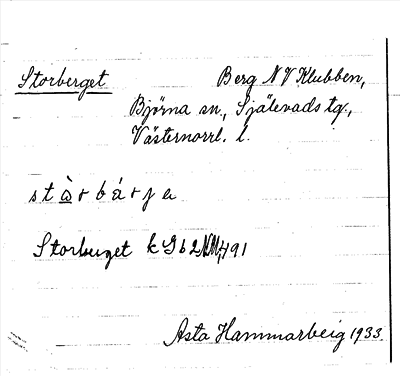 Storberget Berg NV Klubben,
Björna sn., Själevads tg.,
Västernorrl. l.
st ὰ r b á r j e
Storberget k Gb 2 491
Asta Hammarberg 1933.